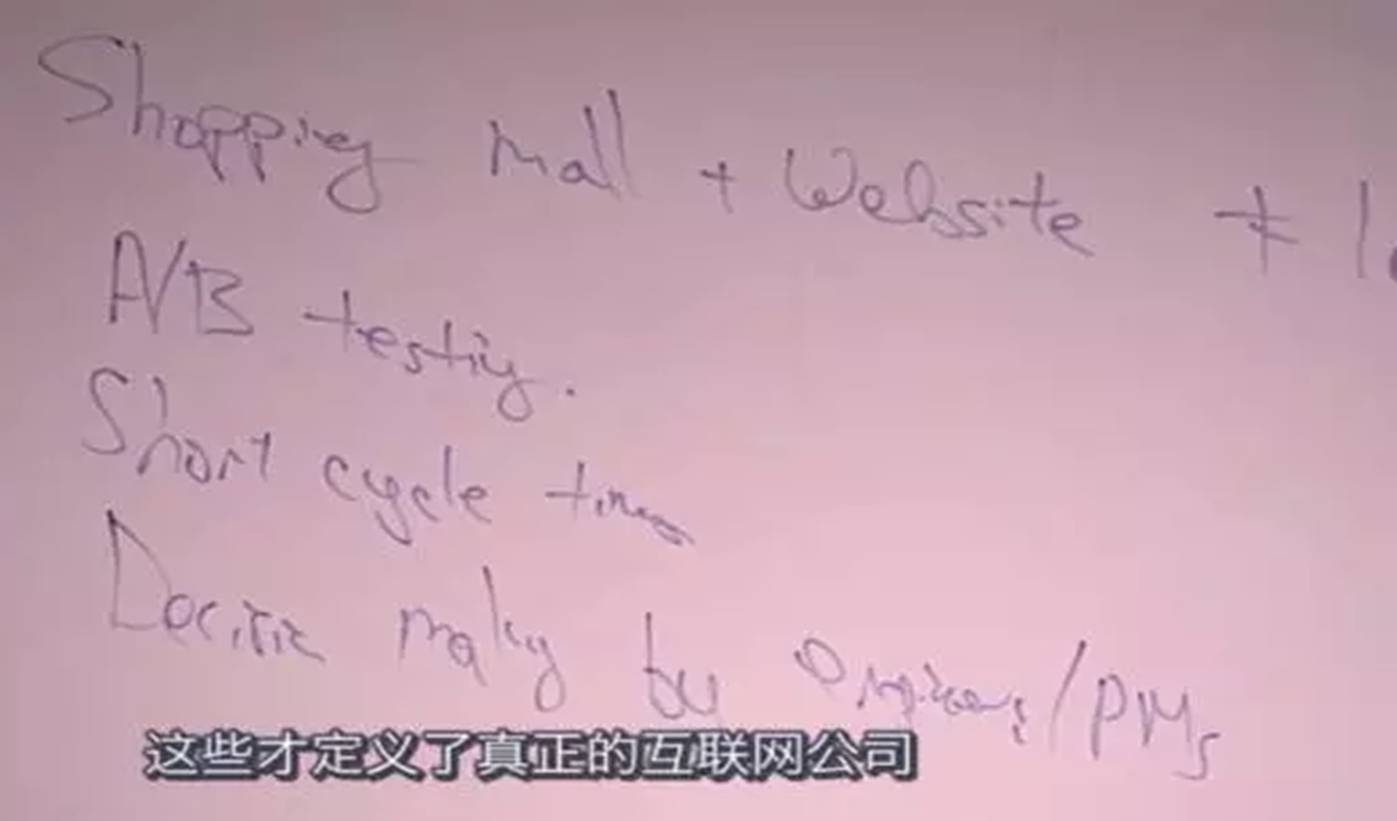 Shopping mall + Website ≠
A/B testing.
Short cycle time
Decisin making by Engineers/PMs
这些才定义了真正的互联网公司